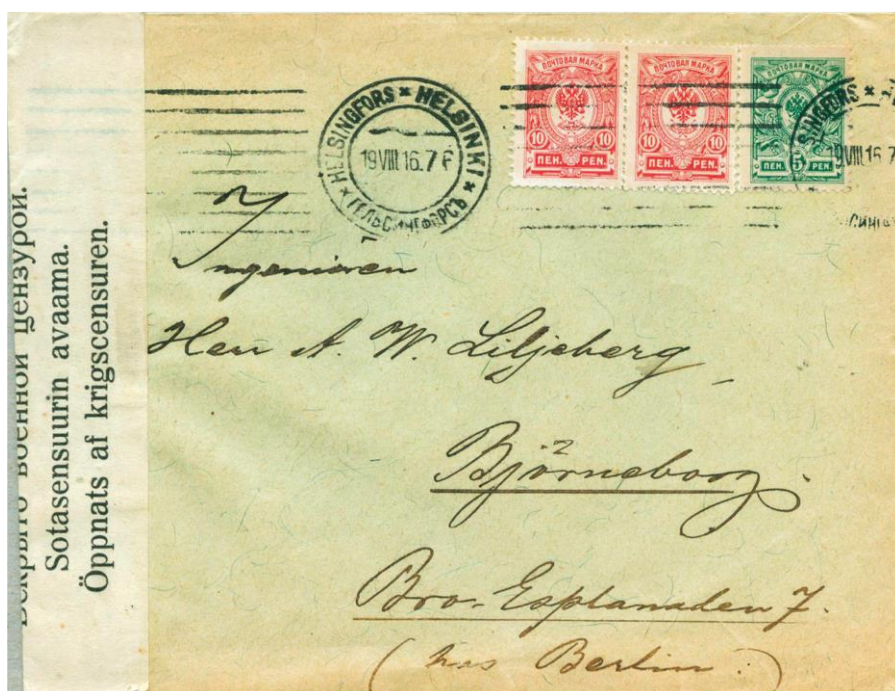 Вскрыто военной цензурой.
Sotasensuurin avaama.
Öppnats af krigscensuren.
HELSINGFORS * HELSINKI
19.VIII.16.7
ГЕЛЬСИНГФОРСЪ
ПОЧТОВАЯ МАРКА
10 10
ПЕН. PEN.
ПОЧТОВАЯ МАРКА
10 10
ПЕН. PEN.
ПОЧТОВАЯ МАРКА
ПЕН. 5 PEN.
SINGFORS *
19.VIII.16.7
СИНГФ
Ingeniören
Herr A. W. Liljeberg
Björneborg
Bro-Esplanaden 7.
(hos Berlin.)